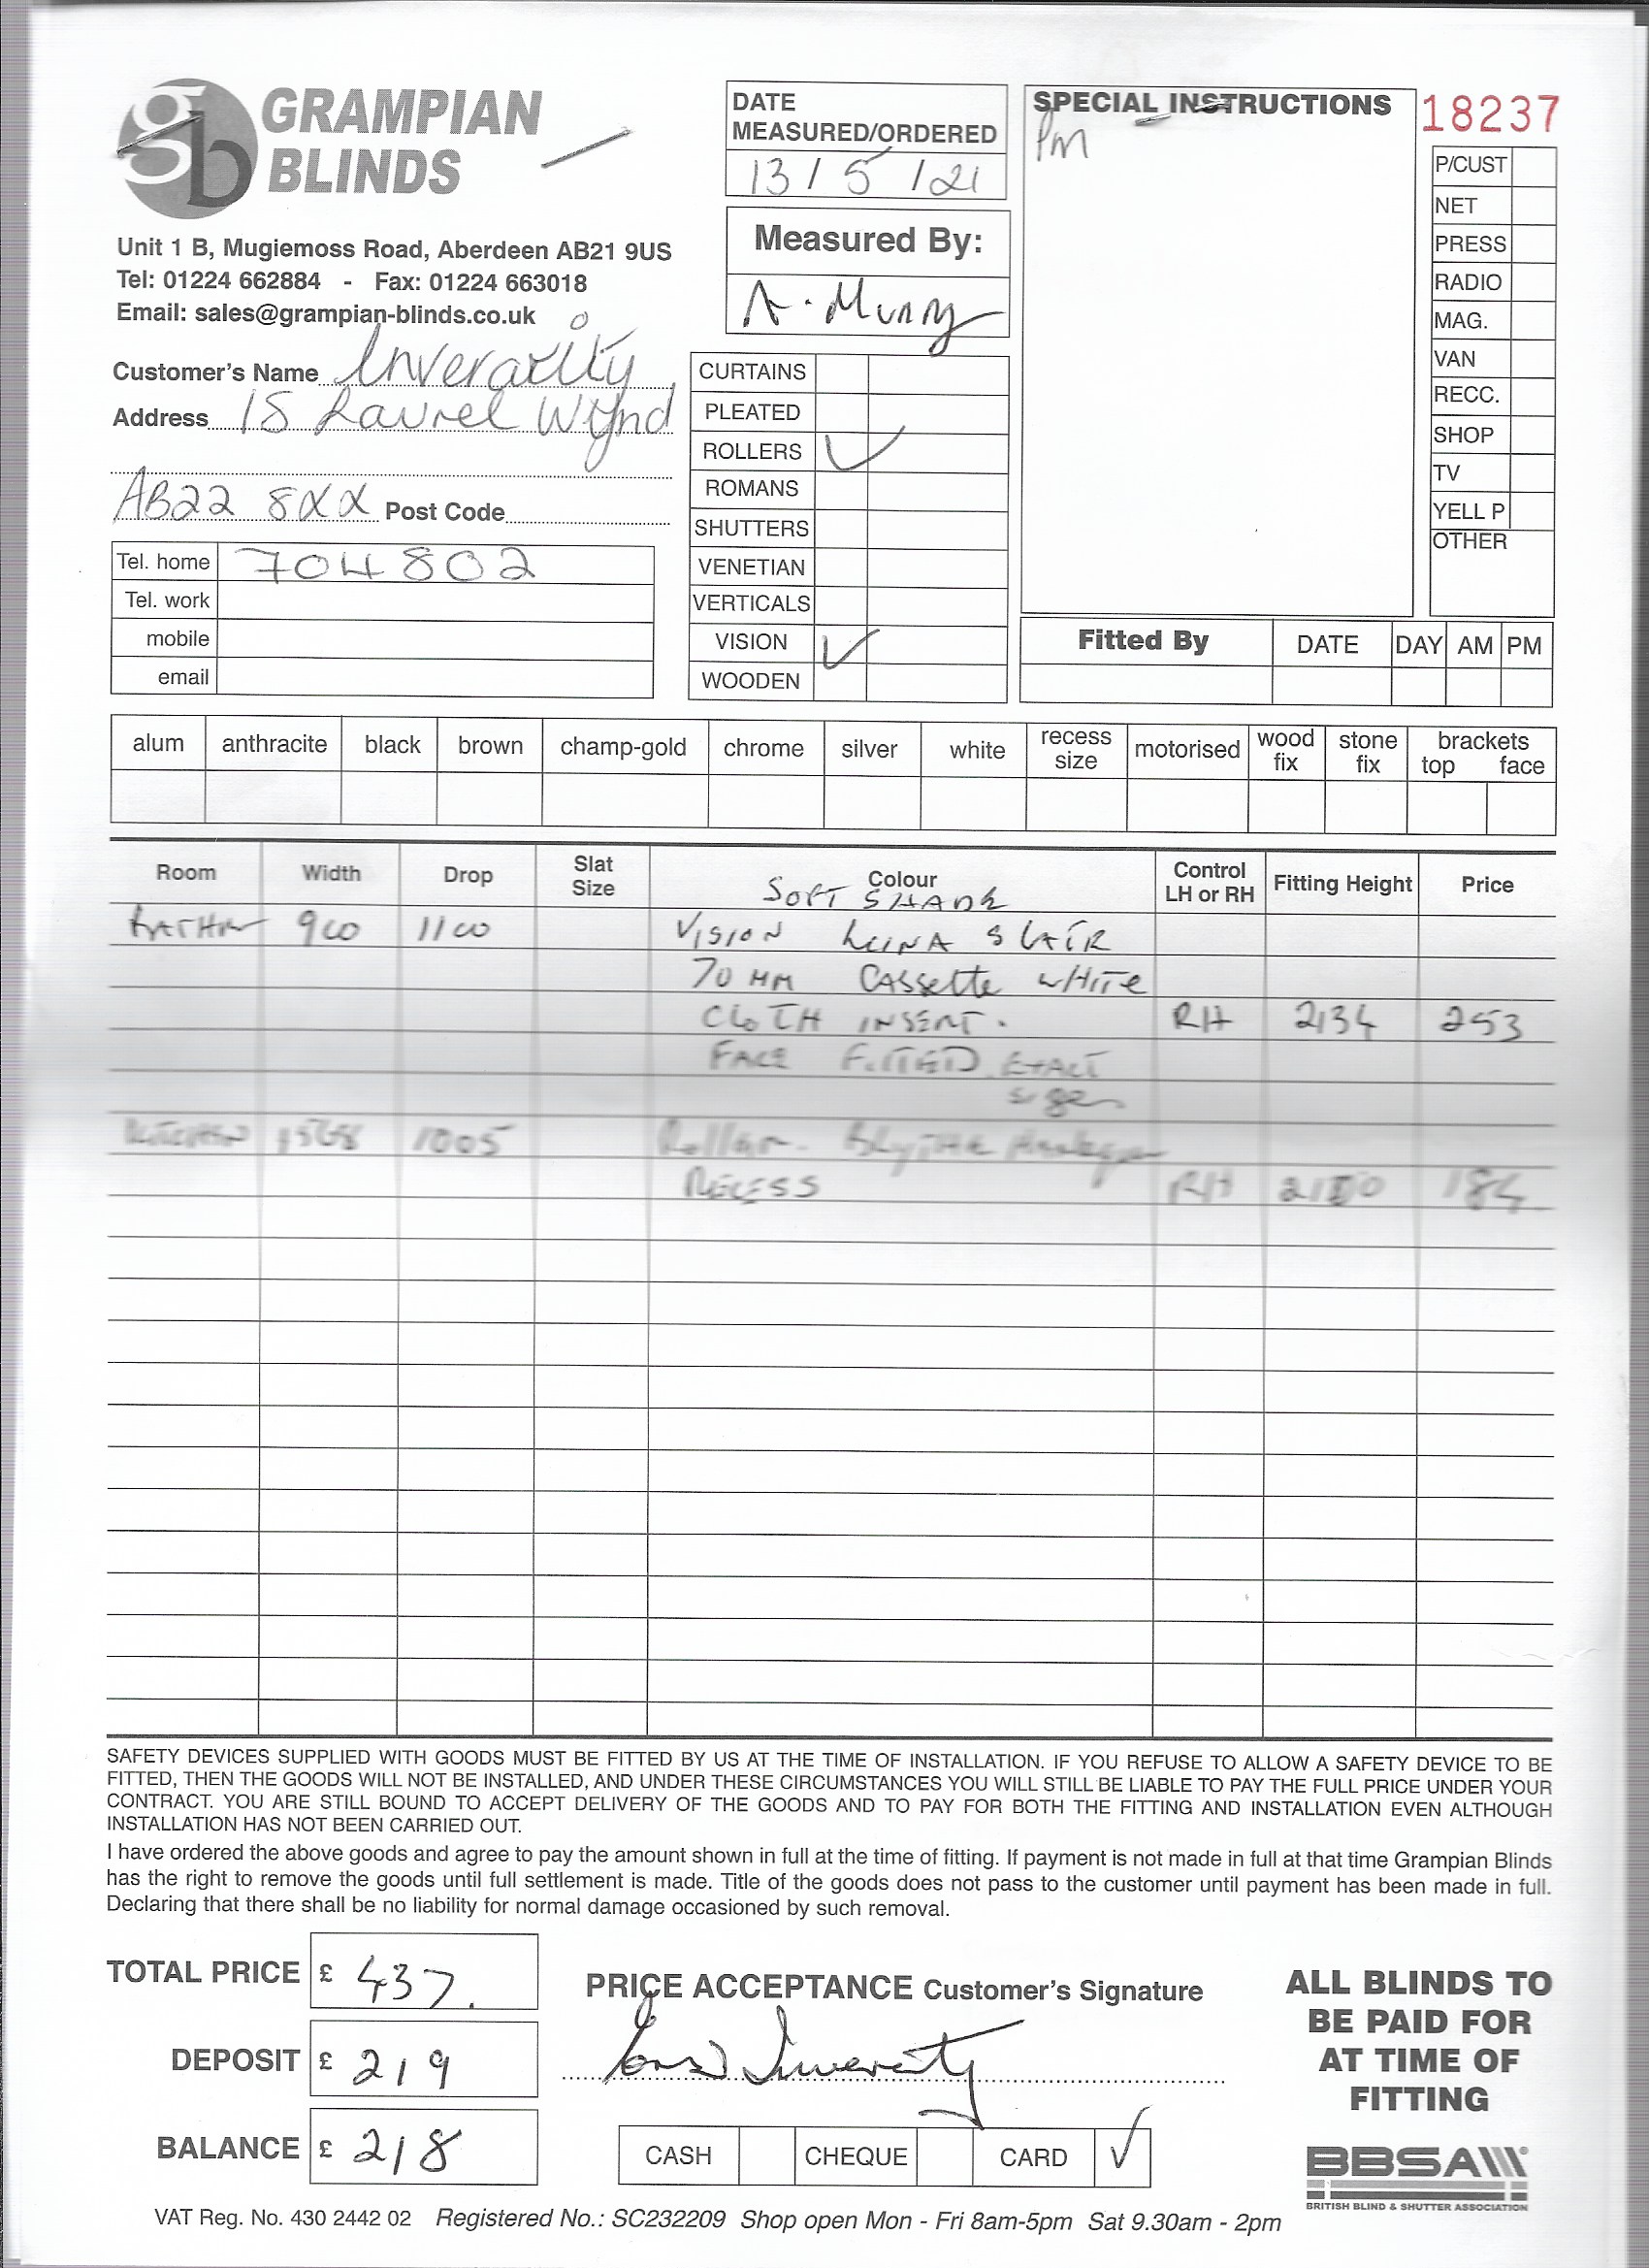 gb GRAMPIAN BLINDS
Unit 1 B, Mugiemoss Road, Aberdeen AB21 9US
Tel: 01224 662884 - Fax: 01224 663018
Email: sales@grampian-blinds.co.uk
Customer's Name Inverarity
Address 15 Laurel Wynd
AB22 8XX Post Code
Tel. home 704802
Tel. work
mobile
email
DATE
MEASURED/ORDERED
13/5/21
Measured By:
A. Murray
CURTAINS
PLEATED
ROLLERS ✓
ROMANS
SHUTTERS
VENETIAN
VERTICALS
VISION ✓
WOODEN
SPECIAL INSTRUCTIONS
Pm
18237
P/CUST
NET
PRESS
RADIO
MAG.
VAN
RECC.
SHOP
TV
YELL P
OTHER
Fitted By DATE DAY AM PM
alum anthracite black brown champ-gold chrome silver white recess size motorised wood fix stone fix brackets top face
Room Width Drop Slat Size Colour Control LH or RH Fitting Height Price
SOFT SHADE
900 1100 VISION LUNA
70 MM CASSETTE WHITE
CLOTH INSERT. RH 2134 253
FACE FITTED EXACT
size
KITCHEN 1005 Roller
RECESS RH 184
SAFETY DEVICES SUPPLIED WITH GOODS MUST BE FITTED BY US AT THE TIME OF INSTALLATION. IF YOU REFUSE TO ALLOW A SAFETY DEVICE TO BE
FITTED, THEN THE GOODS WILL NOT BE INSTALLED, AND UNDER THESE CIRCUMSTANCES YOU WILL STILL BE LIABLE TO PAY THE FULL PRICE UNDER YOUR
CONTRACT. YOU ARE STILL BOUND TO ACCEPT DELIVERY OF THE GOODS AND TO PAY FOR BOTH THE FITTING AND INSTALLATION EVEN ALTHOUGH
INSTALLATION HAS NOT BEEN CARRIED OUT.
I have ordered the above goods and agree to pay the amount shown in full at the time of fitting. If payment is not made in full at that time Grampian Blinds
has the right to remove the goods until full settlement is made. Title of the goods does not pass to the customer until payment has been made in full.
Declaring that there shall be no liability for normal damage occasioned by such removal.
TOTAL PRICE £ 437.
DEPOSIT £ 219
BALANCE £ 218
PRICE ACCEPTANCE Customer's Signature
CASH CHEQUE CARD ✓
ALL BLINDS TO
BE PAID FOR
AT TIME OF
FITTING
BBSA
BRITISH BLIND & SHUTTER ASSOCIATION
VAT Reg. No. 430 2442 02 Registered No.: SC232209 Shop open Mon - Fri 8am-5pm Sat 9.30am - 2pm